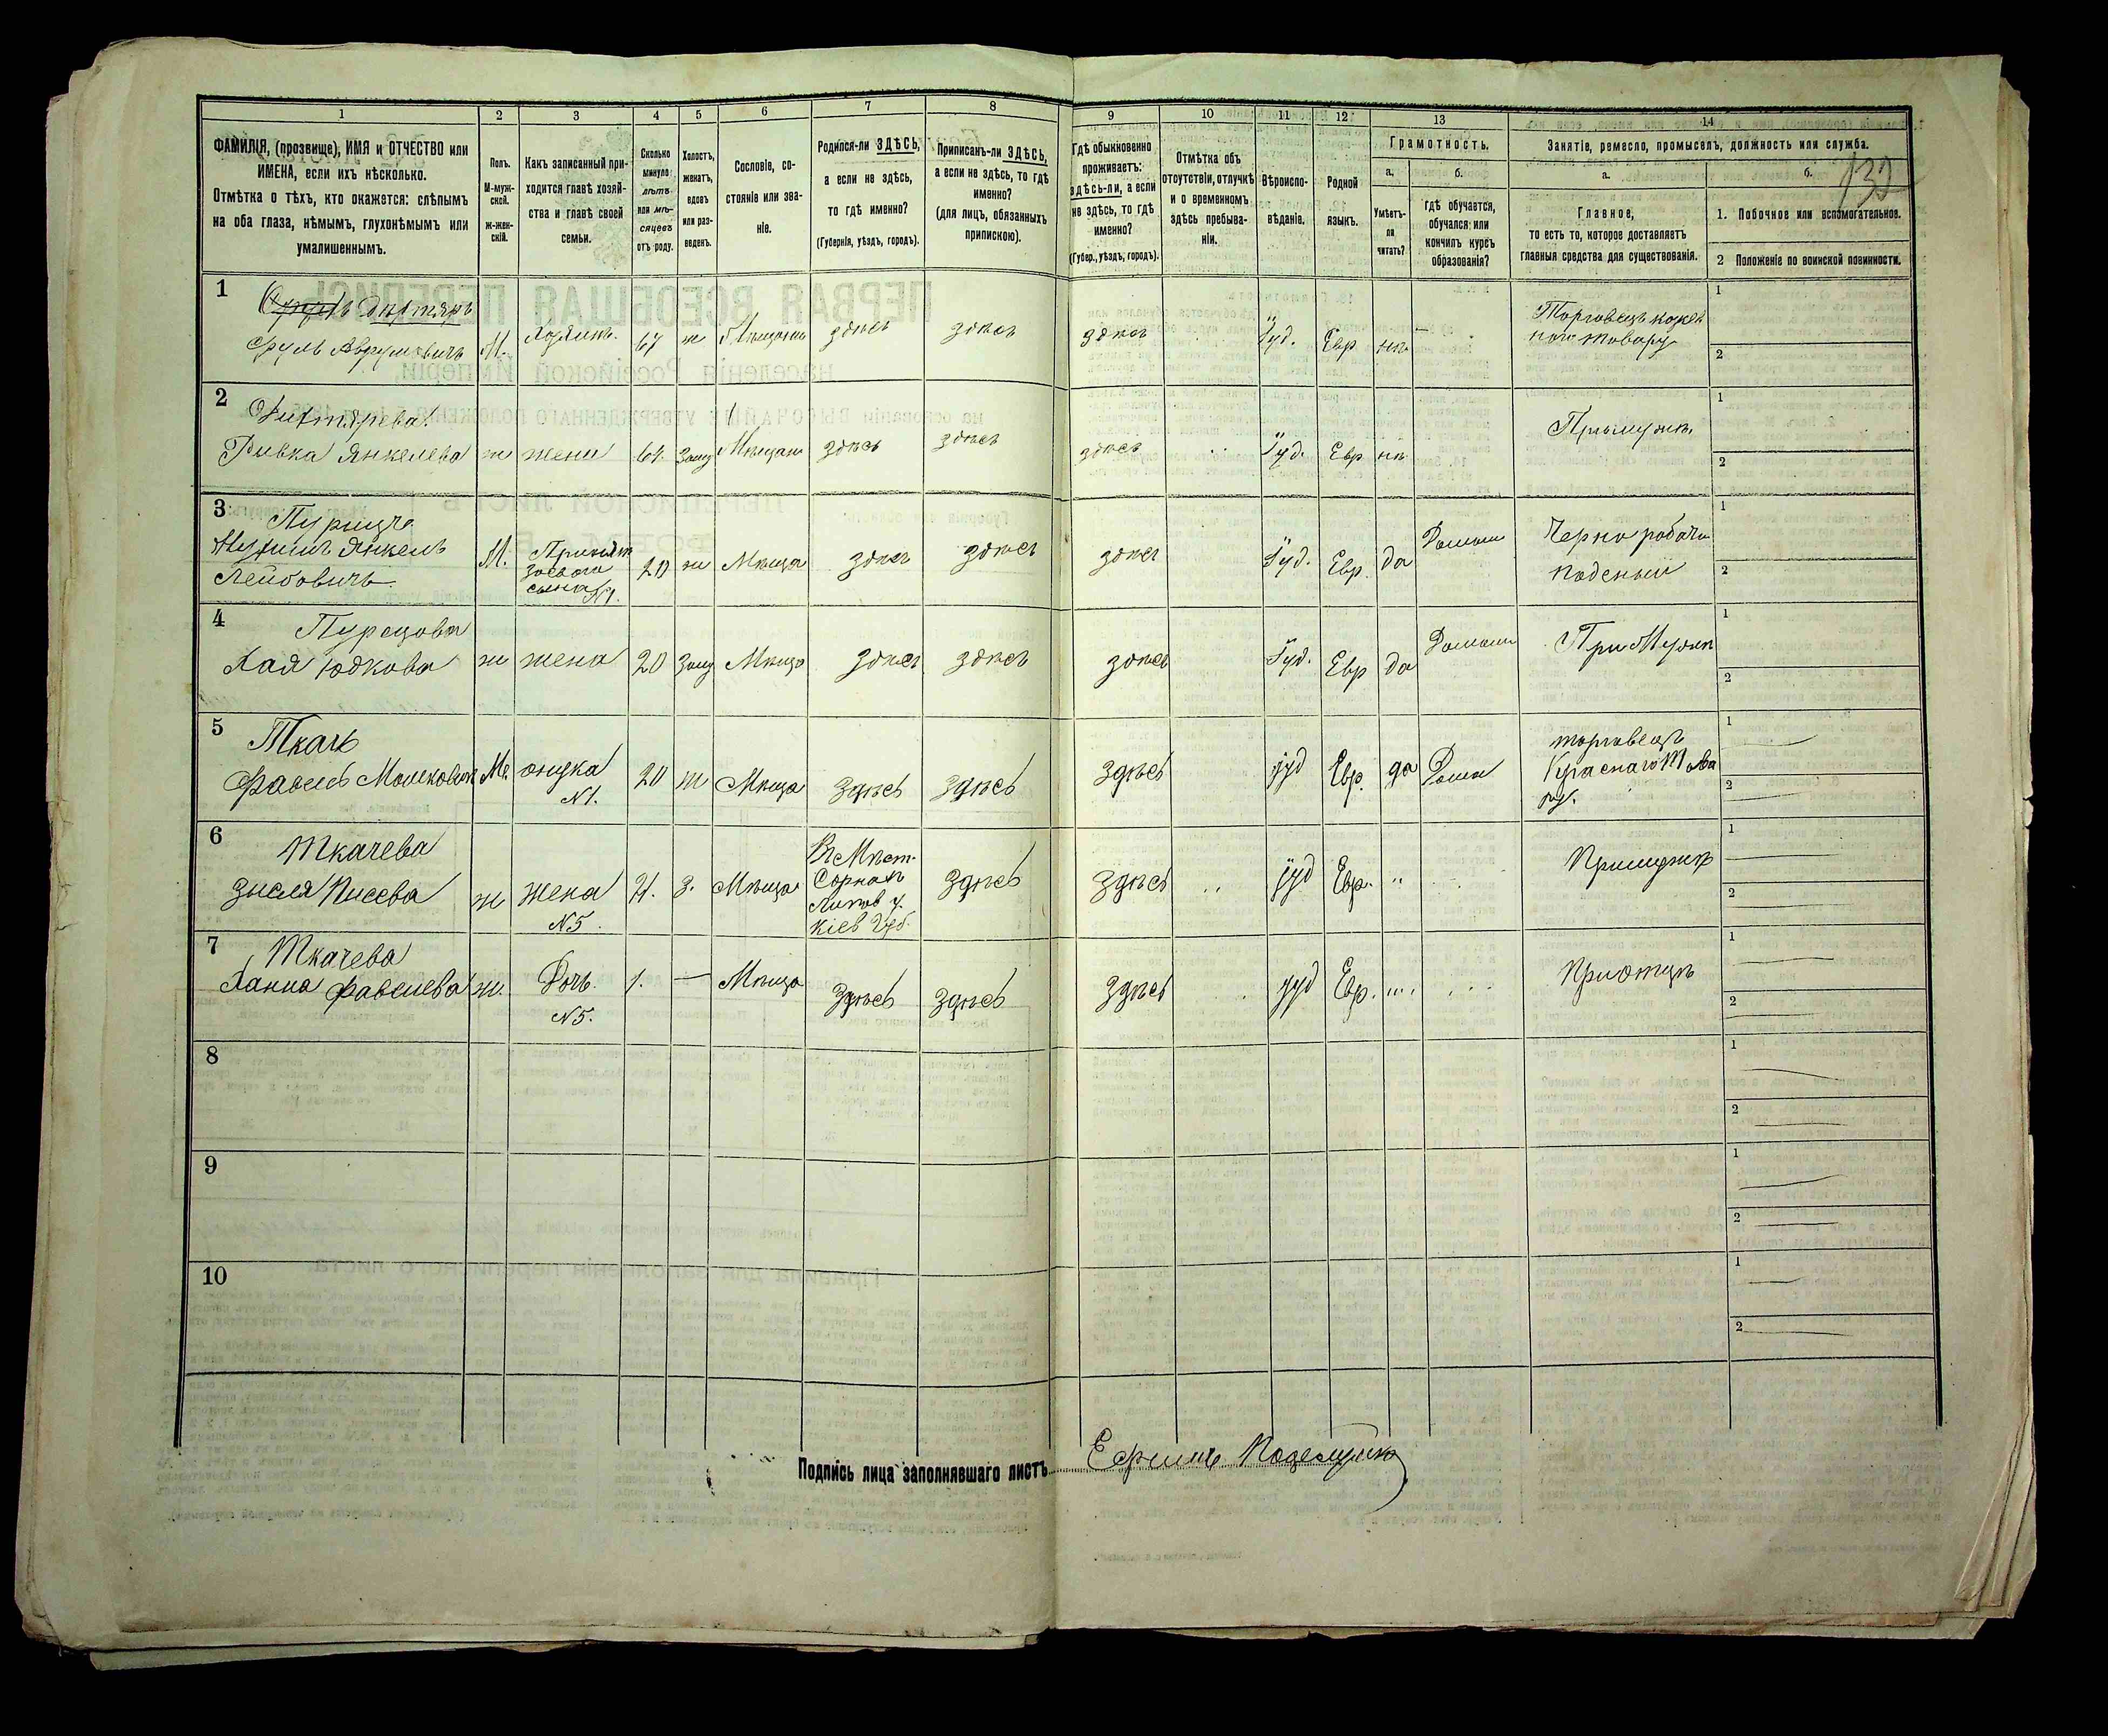 1
2
3
4
5
6
7
8
9
10
11
12
13
14
ФАМИЛІЯ, (прозвище), ИМЯ и ОТЧЕСТВО или
ИМЕНА, если ихъ нѣсколько.
Отмѣтка о тѣхъ, кто окажется: слѣпымъ
на оба глаза, нѣмымъ, глухонѣмымъ или
умалишеннымъ.
Полъ.
М-муж-
ской.
ж-жен-
скій.
Какъ записанный при-
ходится главѣ хозяй-
ства и главѣ своей
семьи.
Сколько
минуло
лѣтъ
или мѣ-
сяцевъ
отъ роду.
Холостъ,
женатъ,
вдовъ
или раз-
веденъ.
Сословіе, со-
стояніе или зва-
ніе.
Родился-ли ЗДѢСЬ,
а если не здѣсь,
то гдѣ именно?
(Губернія, уѣздъ, городъ).
Приписанъ-ли ЗДѢСЬ,
а если не здѣсь, то гдѣ
именно?
(для лицъ, обязанныхъ
припискою).
Гдѣ обыкновенно
проживаетъ:
здѣсь-ли, а если
не здѣсь, то гдѣ
именно?
(Губер., уѣздъ, городъ).
Отмѣтка объ
отсутствіи, отлучкѣ
и о временномъ
здѣсь пребыва-
ніи.
Вѣроиспо-
вѣданіе.
Родной
языкъ.
Грамотность.
а.
Умѣетъ-
ли
читать?
б.
гдѣ обучается,
обучался или
кончилъ курсъ
образованія?
Занятіе, ремесло, промыселъ, должность или служба.
а.
Главное,
то есть то, которое доставляетъ
главныя средства для существованія.
б.
1. Побочное или вспомогательное.
2 Положеніе по воинской повинности.
1
Дехтяръ
Сруль Аврумовичъ
М.
Хозяинъ.
67
ж
Мѣщанинъ
здѣсь
здѣсь
здѣсь
Іуд.
Евр
нѣ
Торговецъ кожев
ной товару
1
2
2
Дихтярева
Ривка Янкелева
ж
жена
64.
Заму
Мѣщан
здѣсь
здѣсь
здѣсь
Іуд.
Евр
нѣ
При мужѣ.
1
2
3
Янкель
Лейбовичъ
М.
сына
N1.
20
ж
Мѣща
здѣсь
здѣсь
здѣсь
Іуд.
Евр.
да
Домаш
Черно рабочи
поденый
1
2
4
Пурецова
Хая Юдкова
ж
жена
20
Заму
Мѣща
здѣсь
здѣсь
здѣсь
Іуд.
Евр
да
Домаш
При Мужѣ
1
2
5
Ткачъ
Фавель Мошковичъ
М.
онука
N1.
20
ж
Мѣща
здѣсь
здѣсь
здѣсь
іуд
Евр.
да
Дома
торговецъ
Краснаго Това
ру.
1
2
6
Ткачева
Писева
ж
жена
N5.
21.
з.
Мѣща
В Мѣст.
Сорнахъ
Липов у.
Кіев Губ.
здѣсь
здѣсь
іуд
Евр.
"
При мужѣ
1
2
7
Ткачева
Ханна Фавелева
ж.
Дочь.
N5.
1.
—
Мѣща
здѣсь
здѣсь
здѣсь
іуд
Евр.
При отцѣ
1
2
8
1
2
9
1
2
10
1
2
Подпись лица заполнявшаго листъ